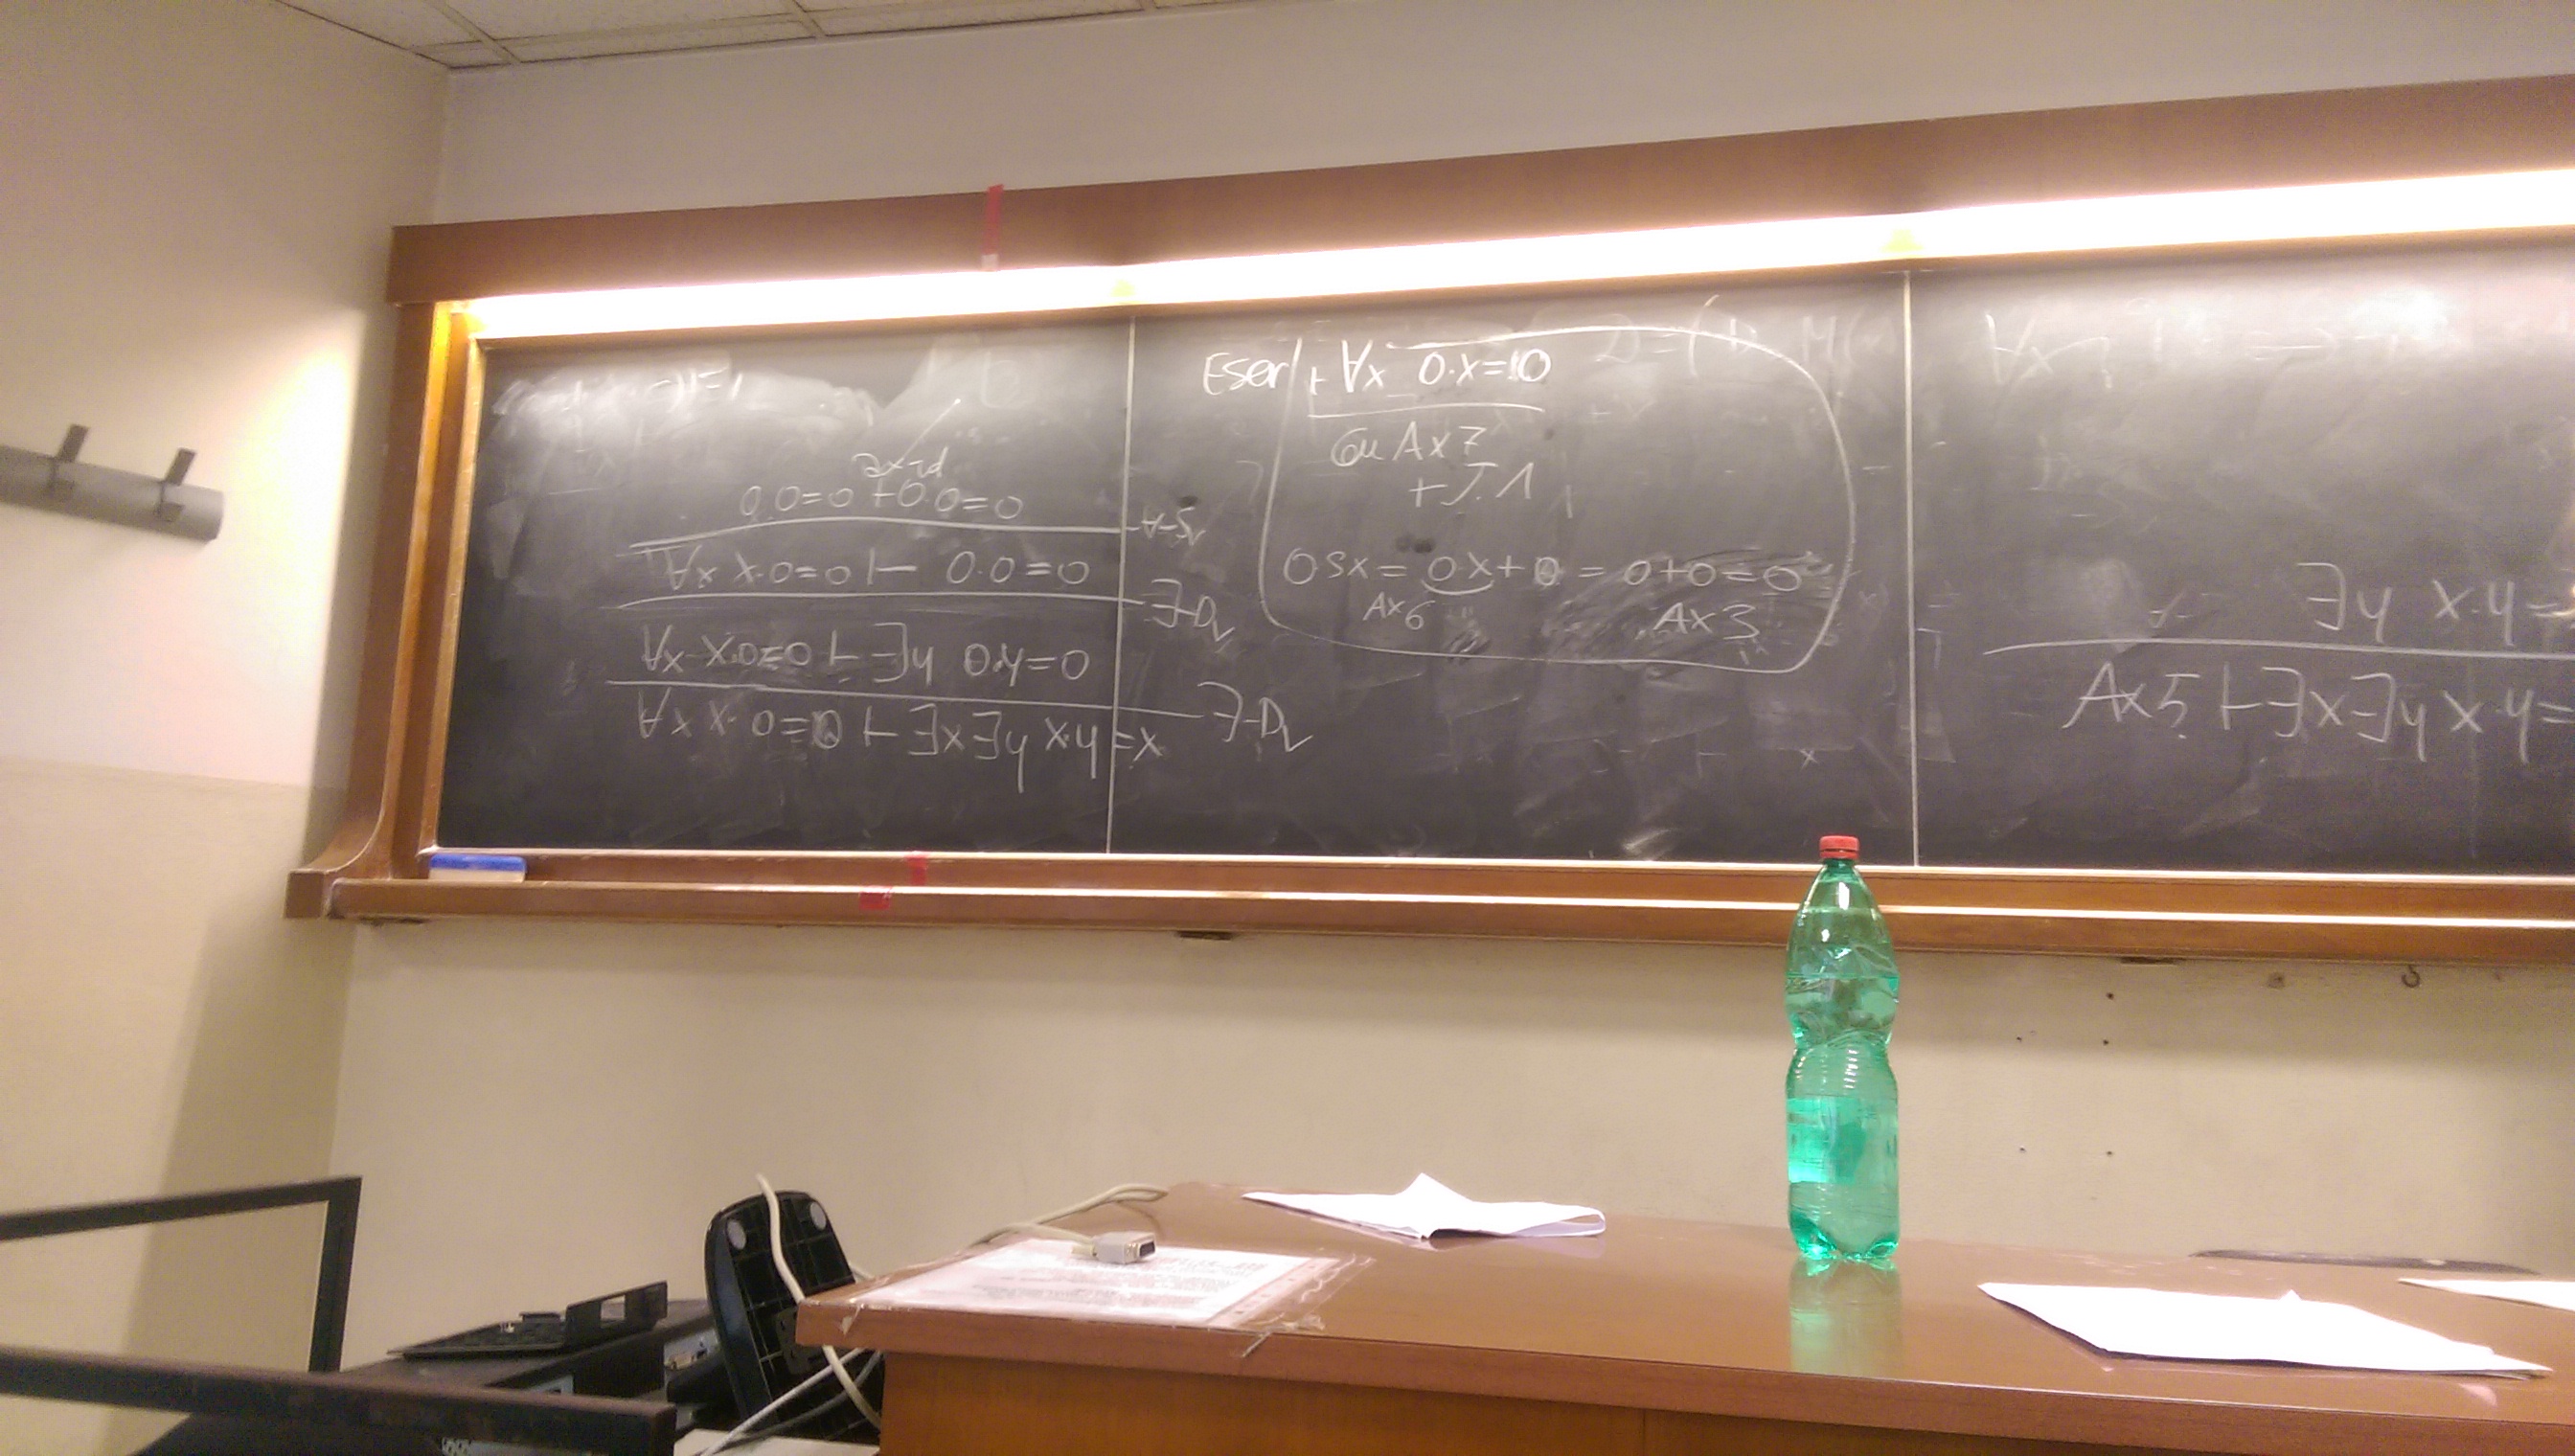 ax-id
0·0=0 ⊢ 0·0=0
∀-sv
∀x x·0=0 ⊢ 0·0=0
∃-Dv
∀x x·0=0 ⊢ ∃y 0·y=0
∃-Dv
∀x x·0=0 ⊢ ∃x∃y x·y=x
Eser ⊢ ∀x 0·x=0
Ax7
+J.1
0sx = 0·x+0 = 0+0=0
Ax6 Ax3
∃y x·y=
Ax5 ⊢ ∃x∃y x·y=